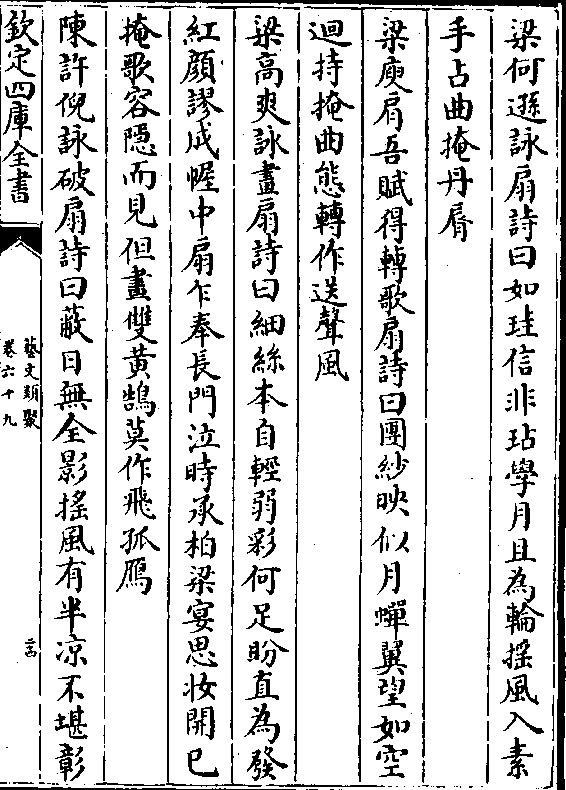 梁何遜詠扇詩曰如珪信非玷學月且為輪揺風入素
手占曲掩丹脣
梁庾肩吾賦得轉歌扇詩曰團紗映似月蟬翼望如空
迴持掩曲態轉作送聲風
梁高爽詠畫扇詩曰細絲本自輕弱彩何足盼直為發
紅顔謬成握中扇乍奉長門泣時承柏梁宴思妝開已
掩歌容隠而見但畫雙黄鵠莫作飛孤鴈
陳許倪詠破扇詩曰蔽日無全影揺風有半凉不堪彰
欽定四庫全書
藝文類聚
卷六十九